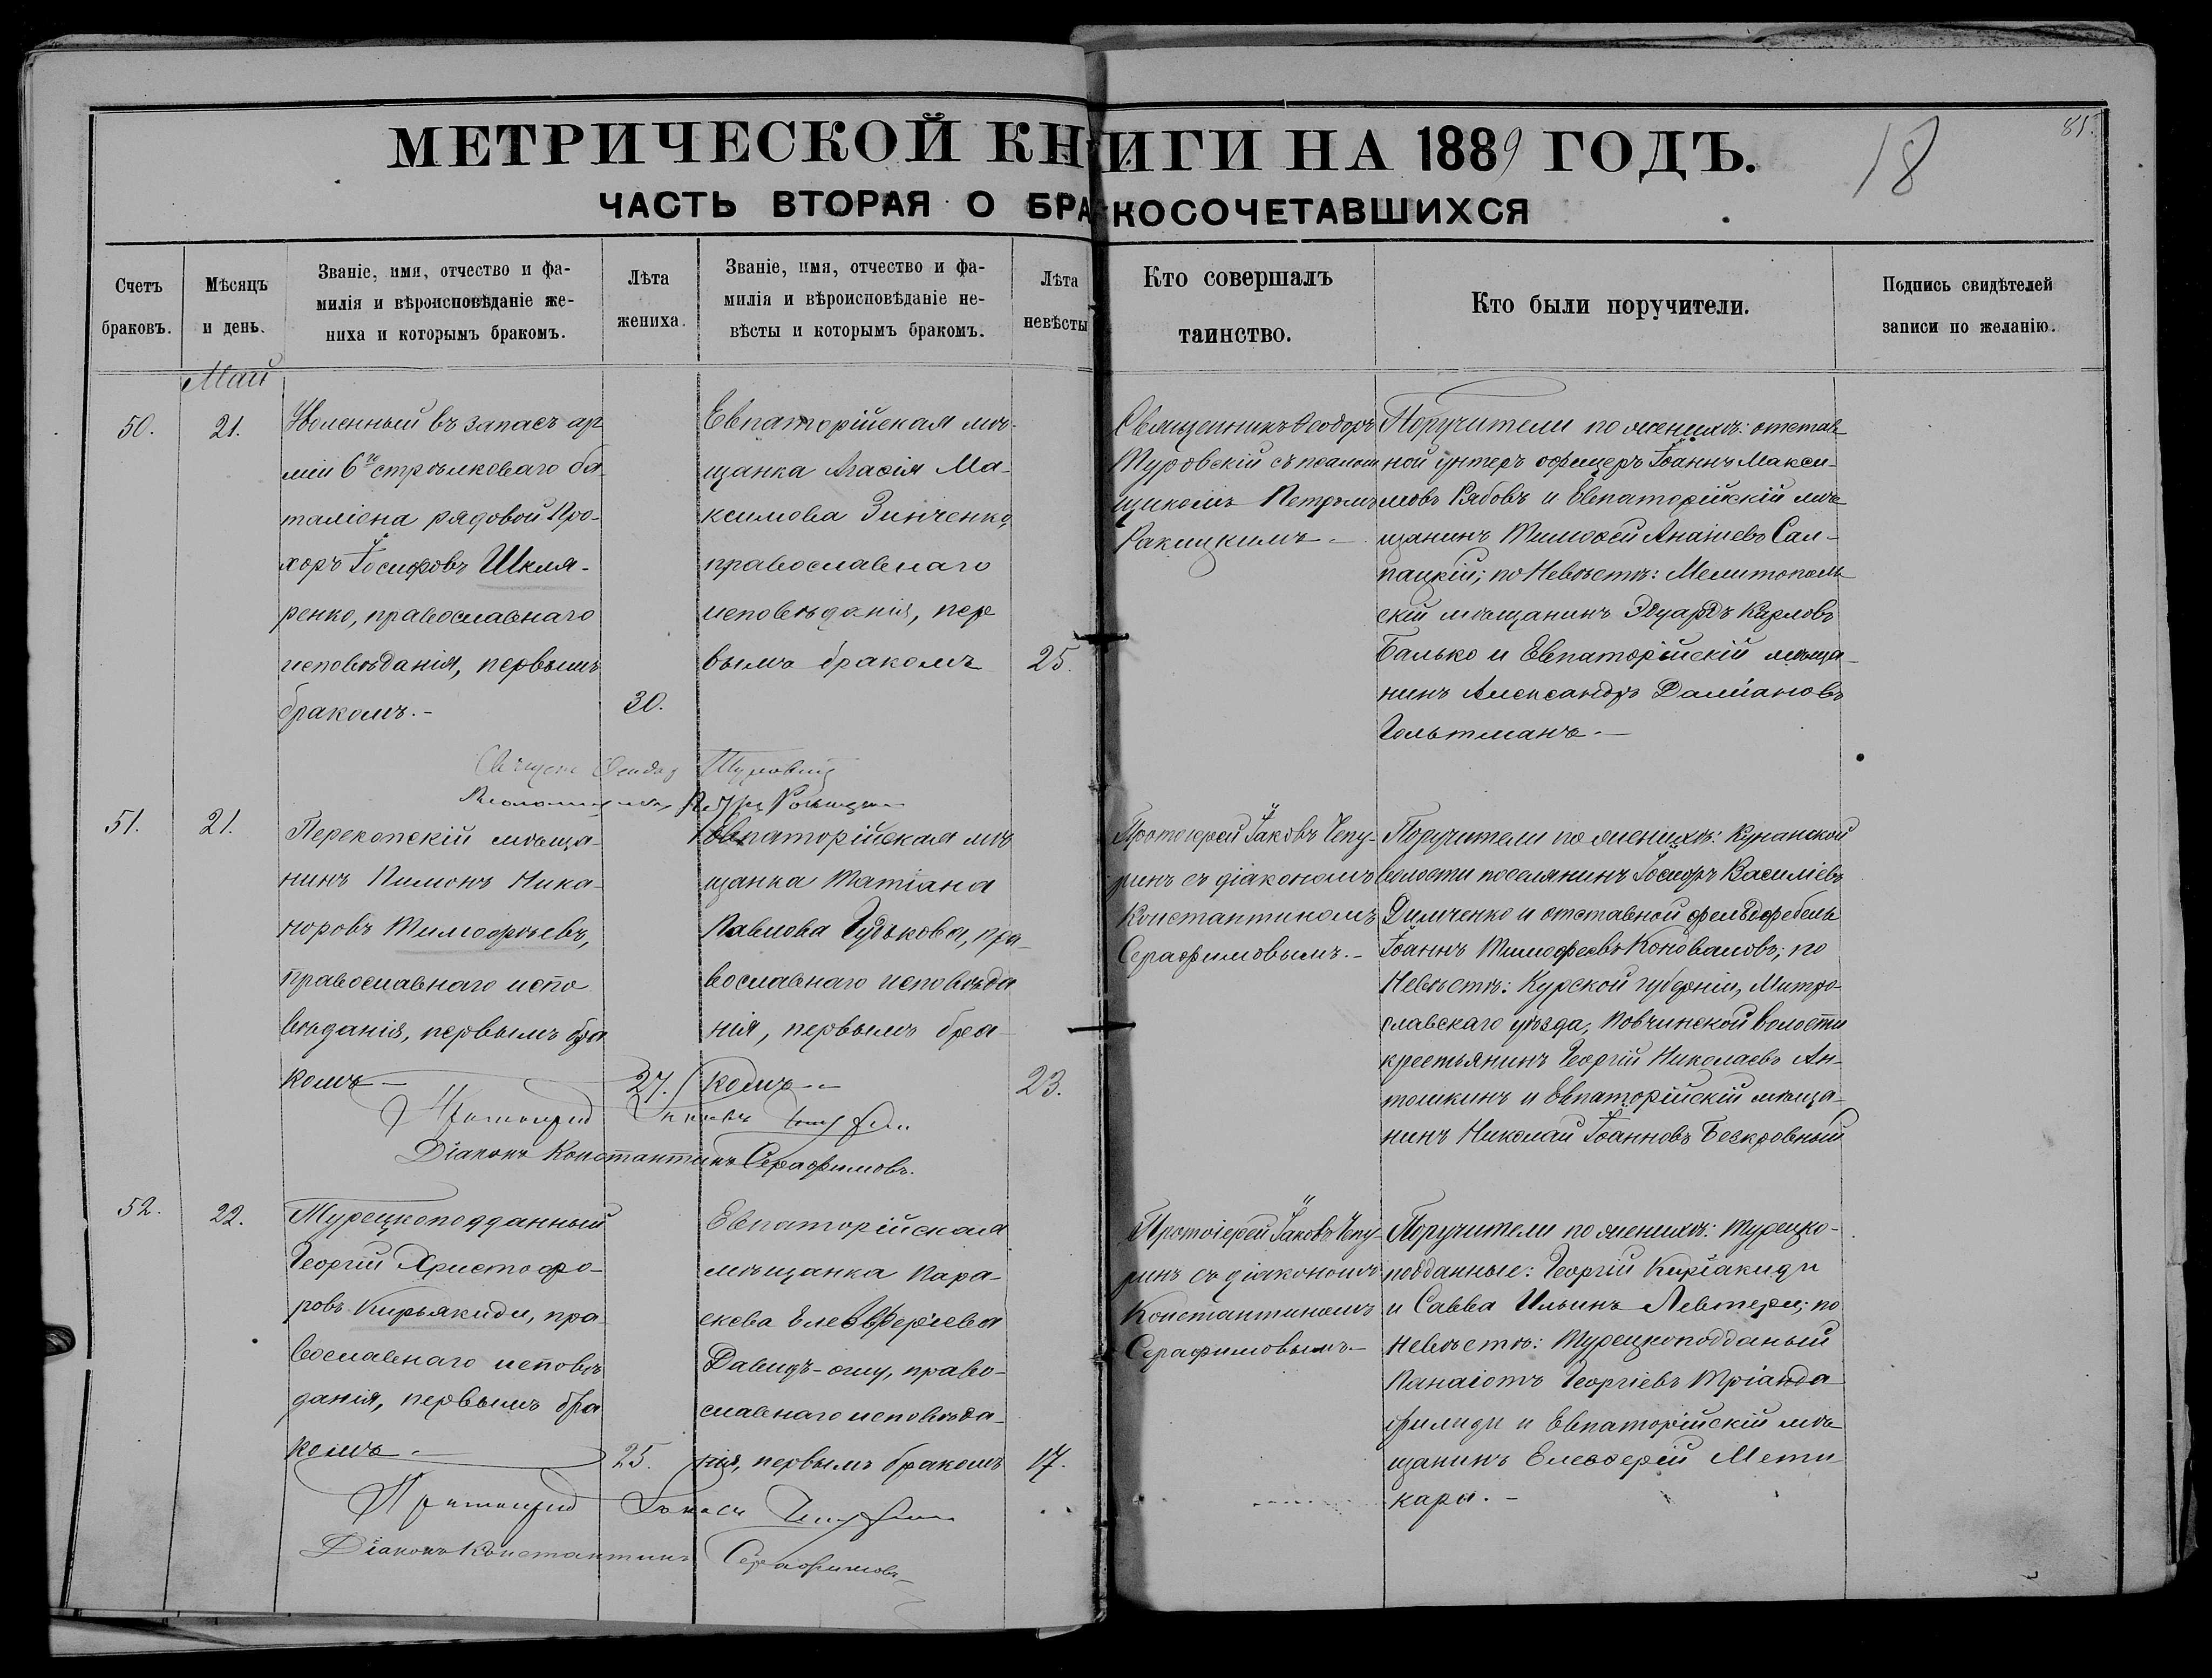 МЕТРИЧЕСКОЙ КНИГИ НА 1889 ГОДЪ.
18
81.
ЧАСТЬ ВТОРАЯ О БРАКОСОЧЕТАВШИХСЯ
Счетъ
браковъ.
Мѣсяцъ
и день.
Званіе, имя, отчество и фа-
милія и вѣроисповѣданіе же-
ниха и которымъ бракомъ.
Лѣта
жениха.
Званіе, имя, отчество и фа-
милія и вѣроисповѣданіе не-
вѣсты и которымъ бракомъ.
Лѣта
невѣсты
Кто совершалъ
таинство.
Кто были поручители.
Подпись свидѣтелей
записи по желанію.
Май
50.
21.
Уволенный въ запасъ ар
міи 6го стрѣлковаго ба-
таліона рядовой Про-
хоръ Іосифовъ Шкля-
ренко, православнаго
исповѣданія, первымъ
бракомъ.-
30.
Евпаторійская мѣ-
щанка Агафія Ма-
ксимова Зинченко,
православнаго
исповѣданія, пер
вымъ бракомъ
25.
Священникъ Ѳеодоръ
Туровскій съ псалом
щикомъ Петромъ
Ракицкимъ -
Поручители по женихѣ: отстав
ной унтеръ офицеръ Іоаннъ Макси-
мовъ Рябовъ и Евпаторійскій мѣ
щанинъ Тимоѳей Ананіевъ Сал-
пацкій; по Невѣстѣ: Мелитополь
скій мѣщанинъ Эдуардъ Карловъ
Балько и Евпаторійскій мѣща-
нинъ Александръ Даміановъ
Гольтманъ.-
51.
21.
Перекопскій мѣща-
нинъ Пимонъ Ника-
норовъ Тимофѣевъ,
православнаго испо
вѣданія, первымъ бра
комъ -
27.
Евпаторійская мѣ
щанка Татіана
Павлова Гудькова, пра-
вославнаго исповѣда
нія, первымъ бра-
комъ -
23.
Протоіерей Іаковъ Чепу-
ринъ съ діакономъ
Константиномъ
Серафимовымъ.-
Поручители по женихѣ: Кунанской
волости поселянинъ Іосифъ Василіевъ
Димченко и отставной фельдфебель
Іоаннъ Тимофеевъ Коноваловъ; по
Невѣстѣ: Курской губерніи, Митро-
славскаго уѣзда, Повчинской волости
крестьянинъ Георгій Николаевъ Ан-
тошкинъ и Евпаторійскій мѣща-
нинъ Николай Іоанновъ Безкровный
Протоіерей Іаковъ Чепуринъ
Діаконъ Константинъ Серафимовъ.
52.
22.
Турецкоподданный
Георгій Христофо-
ровъ Кирьякиди, пра-
вославнаго исповѣ
данія, первымъ бра
комъ.-
25.
Евпаторійская
мѣщанка Пара-
скева Елевферіева
Давидъ-оглу, право-
славнаго исповѣда-
нія, первымъ бракомъ
17.
Протоіерей Іаковъ Чепу-
ринъ съ діакономъ
Константиномъ
Серафимовымъ-
Поручители по женихѣ: турецко-
подданные: Георгій Киріакиди
и Савва Ильинъ Левтери; по
невѣстѣ: Турецкоподданый
Панаіотъ Георгіевъ Тріанда
филиди и Евпаторійскій мѣ
щанинъ Елевѳерій Мети
кары.-
Протоіерей Іаковъ Чепуринъ
Діаконъ Константинъ Серафимовъ